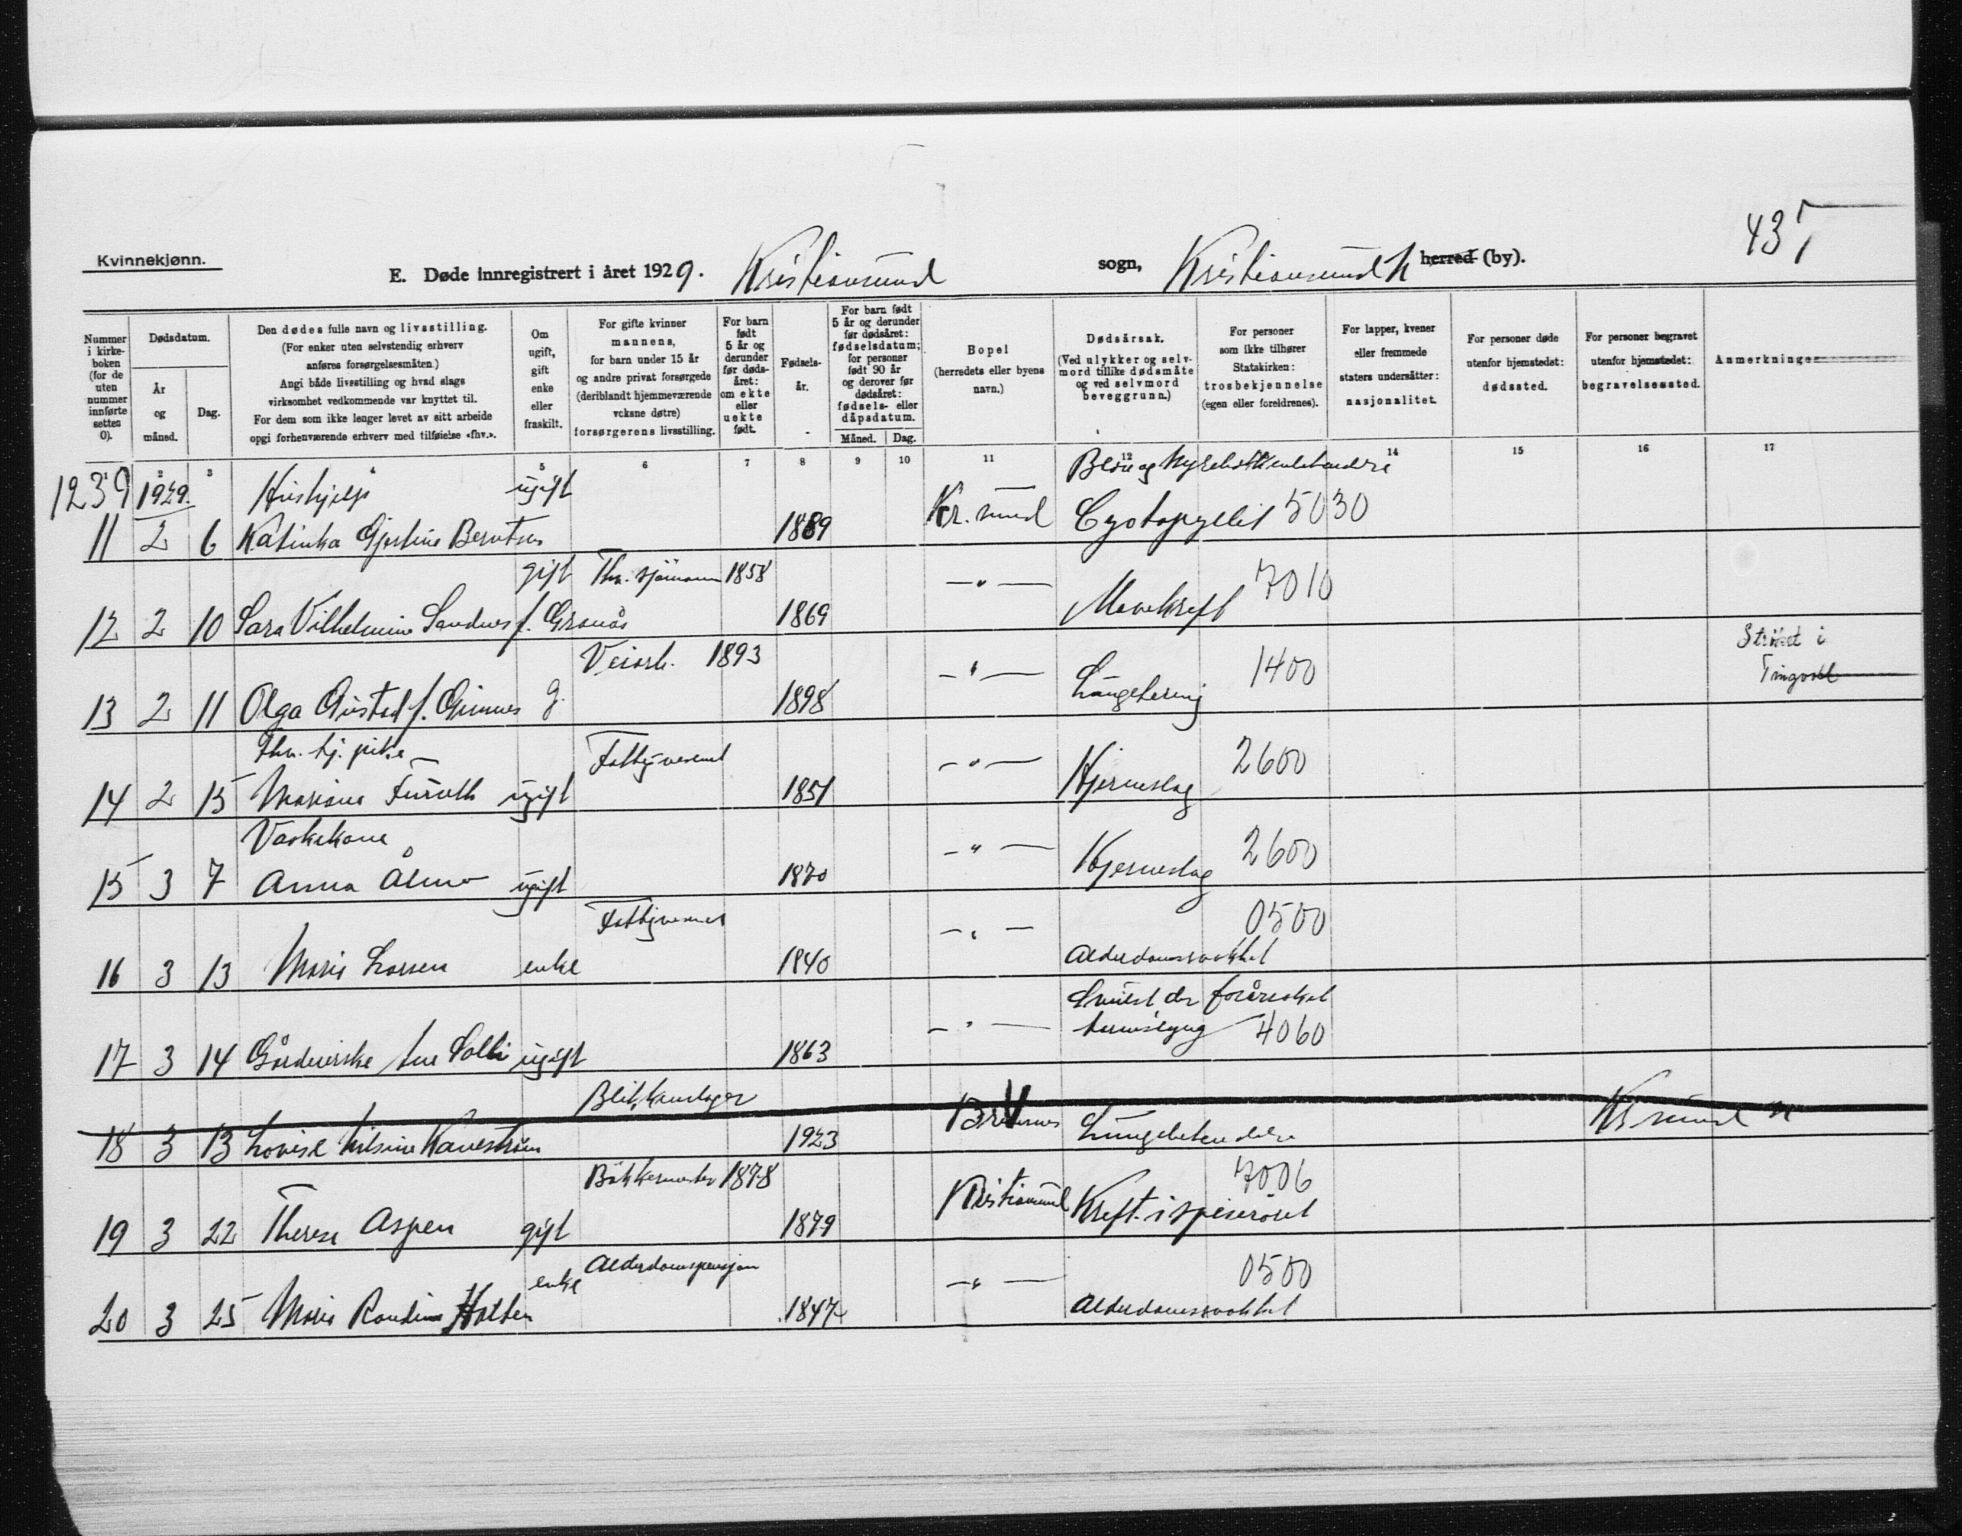 437
Kvinnekjønn.
E. Døde innregistrert i året 1929. Kristiansund sogn, Kristiansund N herred (by).
Nummer i kirkeboken (for de uten nummer innførte settes 0).
Dødsdatum.
År og måned.
Dag.
Den dødes fulle navn og livsstilling.
(For enker uten selvstendig erhverv anføres forsørgelsesmåten.)
Angi både livsstilling og hvad slags virksomhet vedkommende var knyttet til.
For dem som ikke lenger levet av sitt arbeide opgi forhenværende erhverv med tilføielse «fhv.».
Om ugift, gift enke eller fraskilt.
For gifte kvinner mannens, for barn under 15 år og andre privat forsørgede (deriblandt hjemmeværende voksne døtre) forsørgerens livsstilling.
For barn født 5 år og derunder før dødsåret: om ekte eller uekte født.
Fødselsår.
For barn født 5 år og derunder før dødsåret: fødselsdatum; for personer født 90 år og derover før dødsåret: fødsels- eller dåpsdatum.
Måned. Dag.
Bopel (herredets eller byens navn.)
Dødsårsak. (Ved ulykker og selvmord tillike dødsmåte og ved selvmord beveggrunn.)
For personer som ikke tilhører Statskirken: trosbekjennelse (egen eller foreldrenes).
For lapper, kvener eller fremmede staters undersåtter: nasjonalitet.
For personer døde utenfor hjemstedet: dødssted.
For personer begravet utenfor hjemstedet: begravelsessted.
Anmerkninger
2 3 5 6 7 8 9 10 11 12 14 15 16 17
1239 1929. Hushjelp ugift Kr. sund
11 2 6 Katinka Gjertine Berntsen 1889 5030
gift Fhv. sjömann 1858 —"—
12 2 10 Sara Vilhelmine Sandnes f. Granås 1869 Mavekreft 7010
Veiarb. 1893 —"— 1400 Tingvoll
13 2 11 Olga f. Gimnes g. 1898 Lungetæring
Fhv. tj. pike Fattigvesenet —"— 2600
14 2 15 Mariane ugift 1851 Hjerneslag
Vaskekone —"— 2600
15 3 7 Anna Ålmo ugift 1870 Hjerneslag
Fattigvesenet —"— 0500
16 3 13 Marie Larsen enke 1840 Alderdomssvakhet
—"— 4060
17 3 14 ugift 1863
Blikkenslager Bremsnes Kr sund N
18 3 13 Lovise Nilsine 1923 Lungebetendelse
Bökkermester 1878 Kristiansund 7006
19 3 22 Therese Aspen gift 1879 Kreft i spiserøret
enke Alderdomspensjon —"— 0500
20 3 25 Marie Holten 1847 Alderdomssvakhet